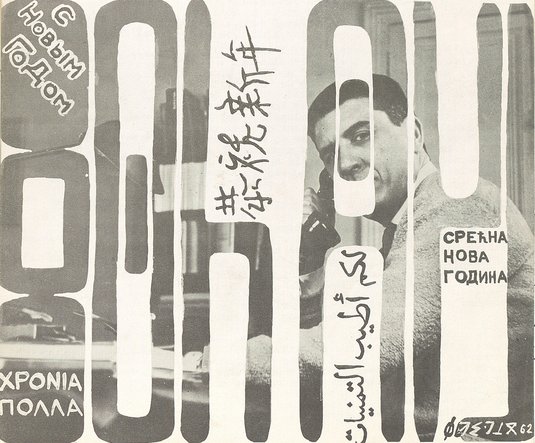 С
НОВЫМ
ГОДОМ
祝新年
لكم أطيب التمنيات
СРЕЋНА
НОВА
ГОДИНА
ΧΡΟΝΙΑ
ΠΟΛΛΑ
62